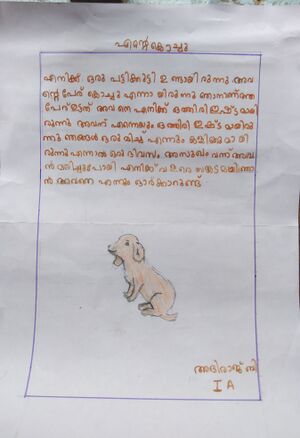 എന്റെ കൊച്ചു
എനിക്ക് ഒരു പട്ടിക്കുട്ടി ഉണ്ടായിരുന്നു. അവ
ന്റെ പേര് കൊച്ചു എന്നാ യിരുന്നു ഞാനാണ്അത
പേര് ഇട്ടത് അവ നെ എനിക്ക് ഒത്തിരി ഇഷ്ട്ട മായി
രുന്നു അവന് എന്നെയും ഒത്തിരി ഇഷ്ട മായിരു
ന്നു ഞങ്ങൾ ഒരു മിച്ചു എന്നും കളിക്കു മാ യി
രുന്നു എന്നാൽ ഒരു ദിവസം അസുഖം വന്ന് അവ
ൻ മരിച്ചുപോയി എനിക്ക് വ ള രെ സങ്കട മായി ഞാ
ൻ അവനെ എന്നും ഓർക്കാറുണ്ട്
അഭിരാമ് ബി
I A